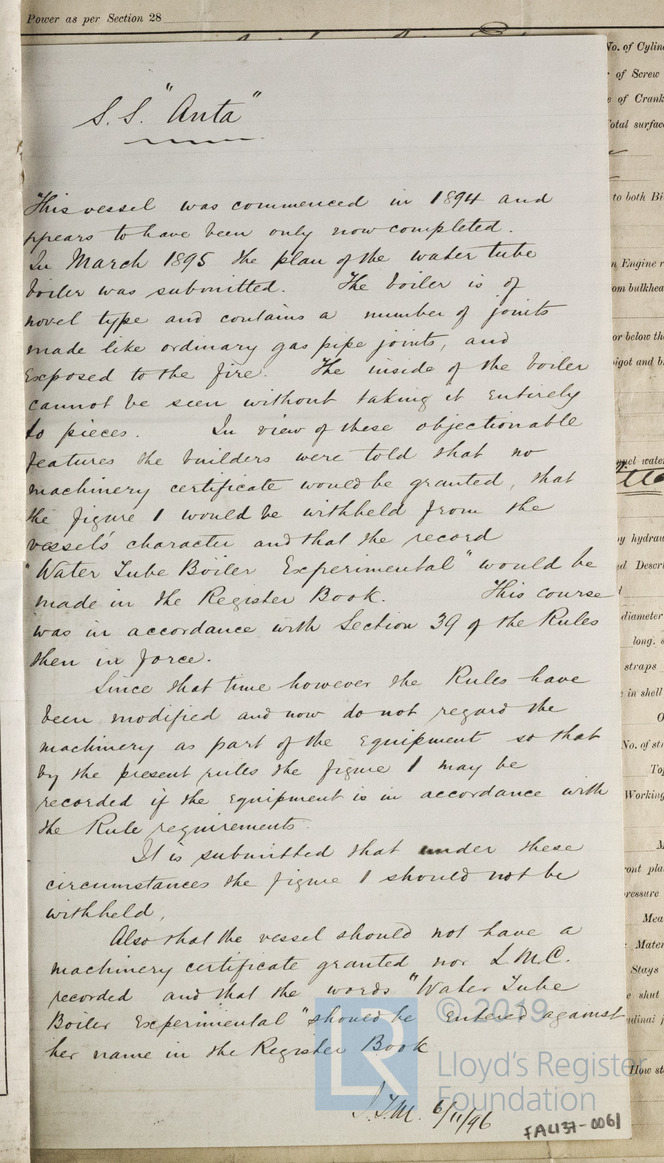 Power as per Section 28
S.S. "Anta"
This vessel was commenced in 1894 and
ppears to have been only now completed.
In March 1895 the plan of the water tube
boiler was submitted. The boiler is of
novel type and contains a number of joints
made like ordinary gas pipe joints, and
exposed to the fire. The inside of the boiler
cannot be seen without taking it entirely
to pieces. In view of these objectionable
features the builders were told that no
machinery certificate would be granted, that
the figure 1 would be withheld from the
vessel's character and that the record
"Water Tube Boiler Experimental" would be
made in the Register Book. This course
was in accordance with Section 39 of the Rules
then in force.
Since that time however the Rules have
been modified and now do not regard the
machinery as part of the equipment so that
by the present rules the figure 1 may be
recorded if the equipment is in accordance with
the Rule requirements.
It is submitted that under these
circumstances the figure 1 should not be
withheld,
Also that the vessel should not have a
machinery certificate granted nor L.M.C.
recorded and that the words "Water Tube
Boiler Experimental" should be entered against
her name in the Register Book
6/11/96
FAL137-0061
© 2019
Lloyd's Register
Foundation
LR
No. of Cylin
of Screw
e of Crank
otal surfac
to both Bi
n Engine r
om bulkhea
or below th
pigot and b
uel water
by hydrau
d Descri
diameter
long. s
straps
in shell
No. of st
To
Working
ont pla
ressure
Mea
Mater
Stays
e shut
udinal j
How st